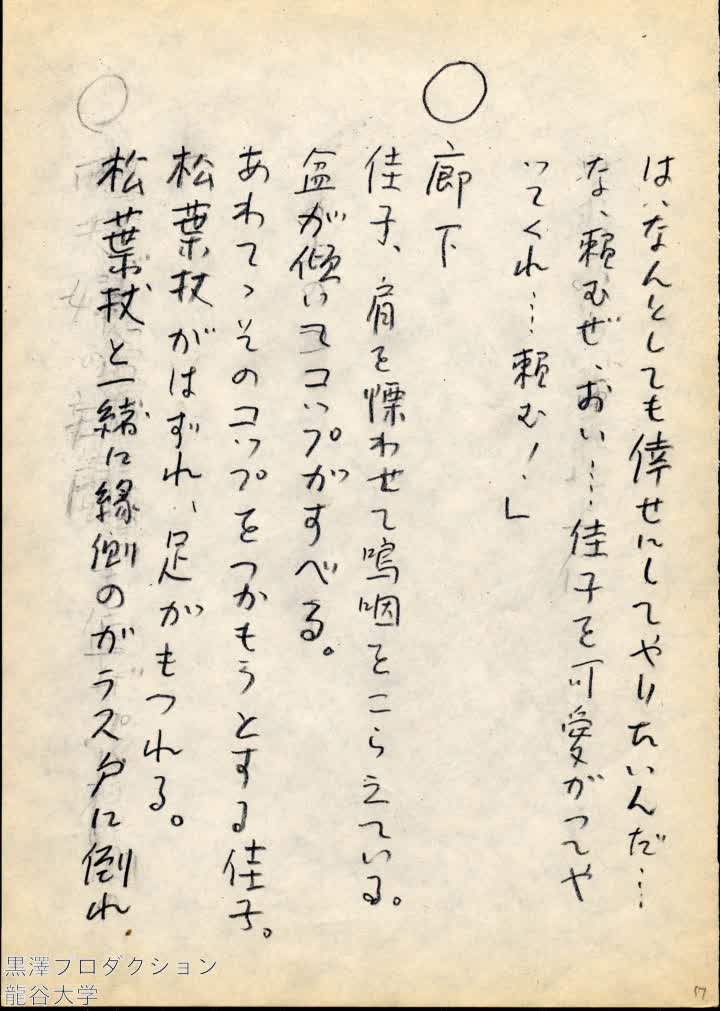 は、なんとしても倖せにしてやりたいんだ…
な、頼むぜ、おい…佳子を可愛がってや
ってくれ…頼む！」
○ 廊下
佳子、肩を慄わせて嗚咽をこらえている。
盆が傾いてコップがすべる。
あわてゝそのコップをつかもうとする佳子。
松葉杖がはずれ、足がもつれる。
○
松葉杖と一緒に縁側のガラス戸に倒れ
17
黒澤プロダクション
龍谷大学